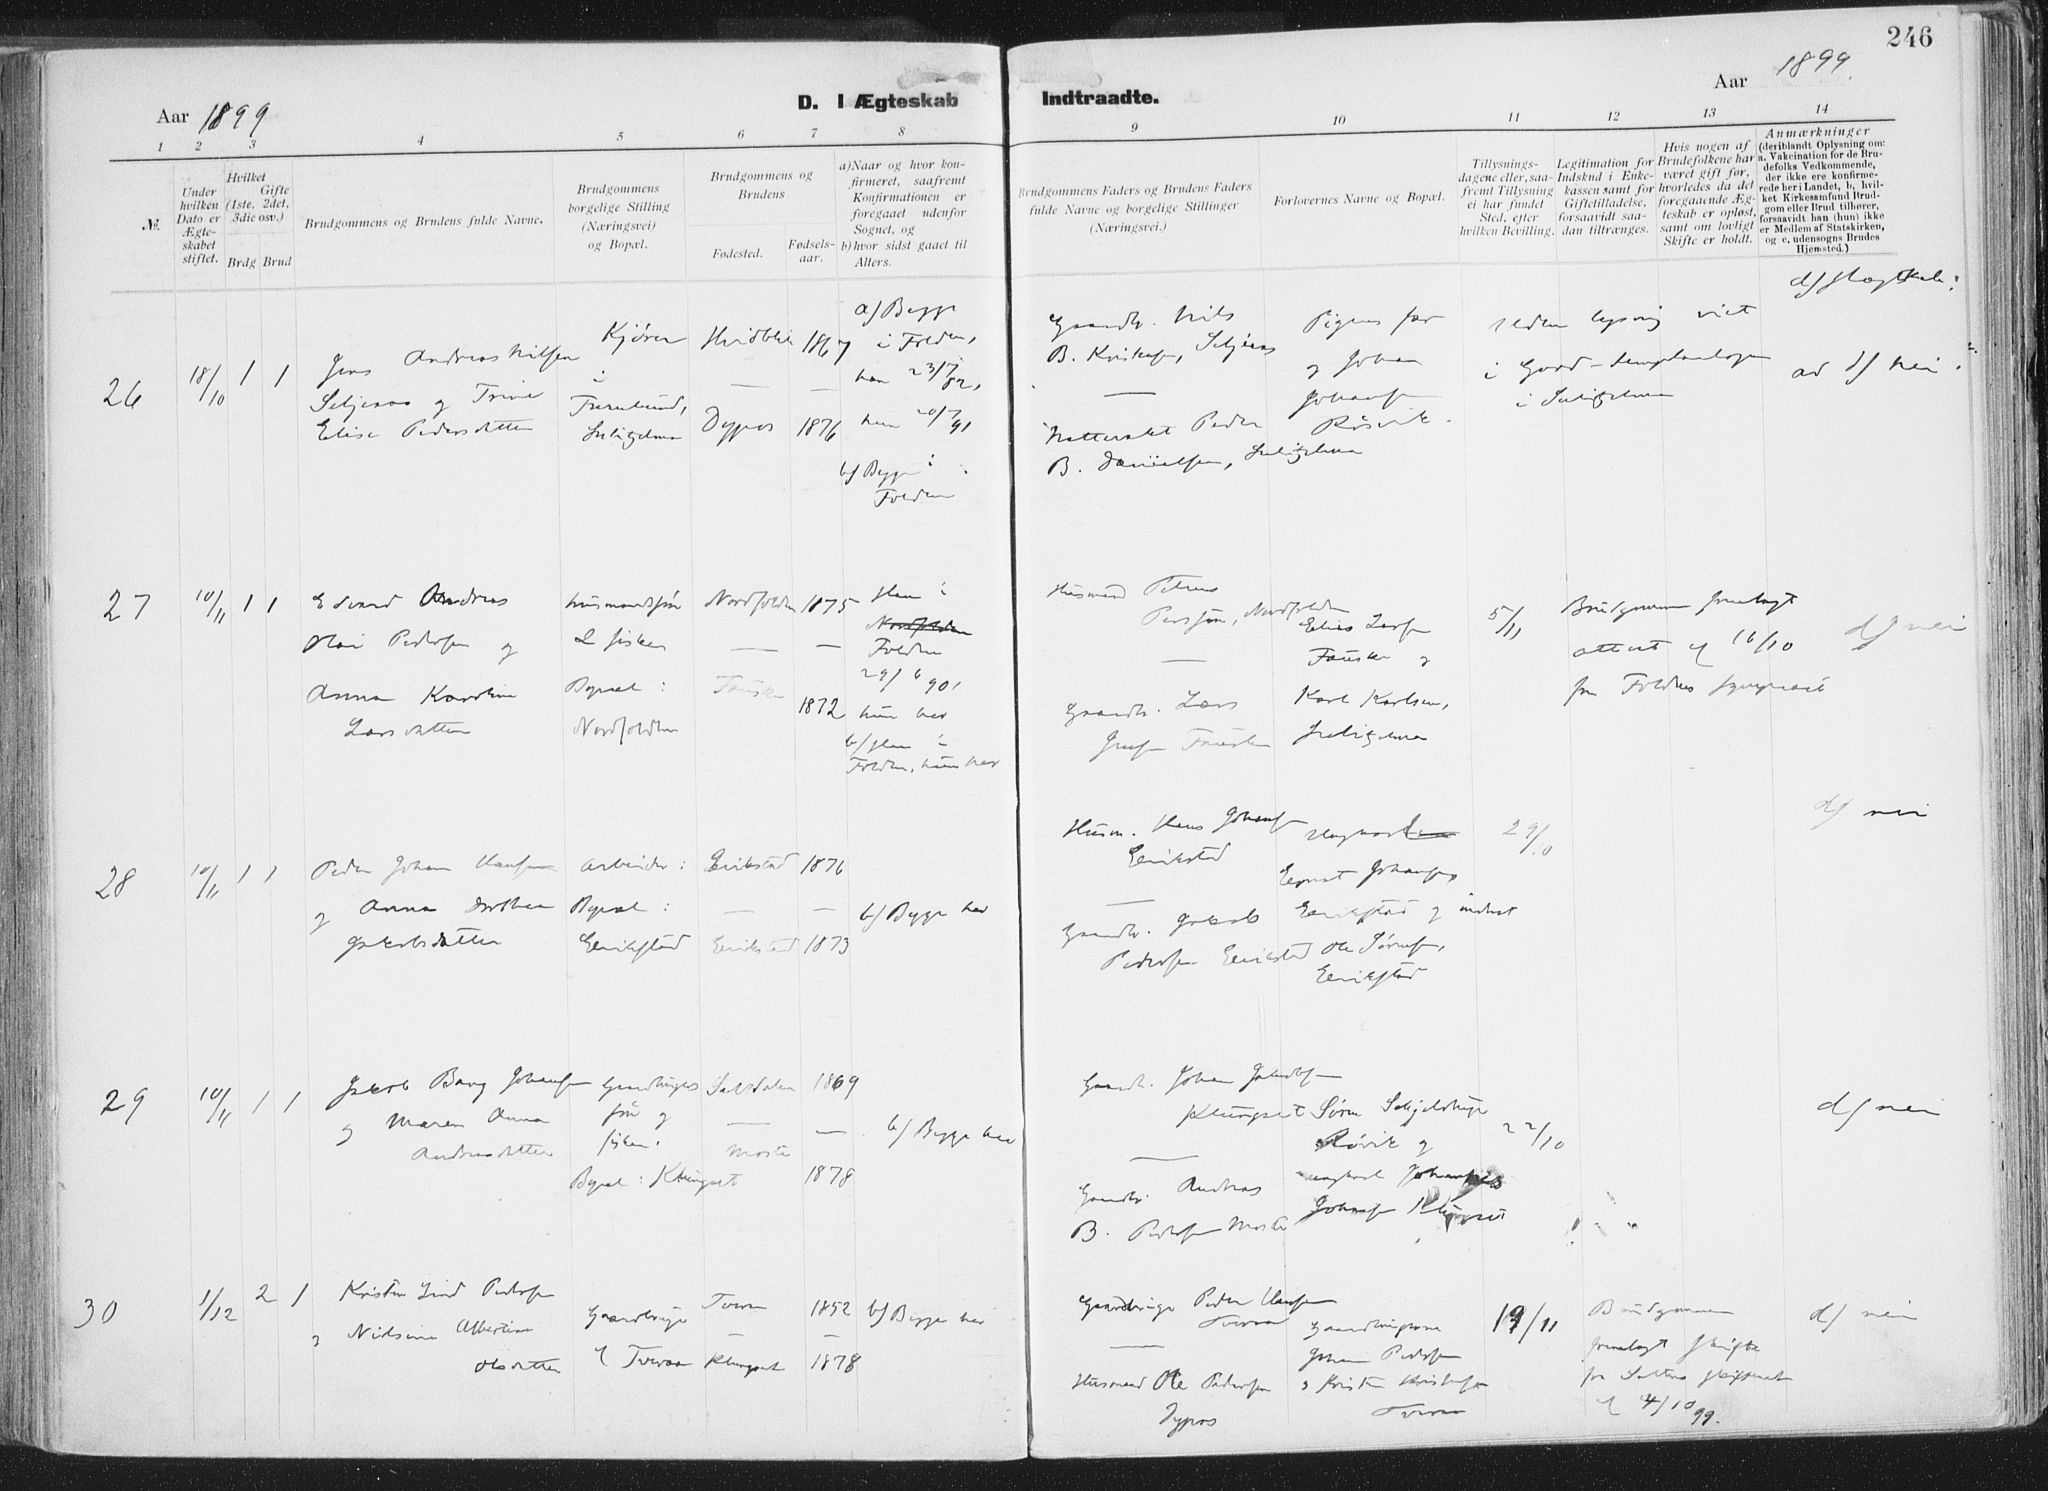 246
Aar 1899
D. I Ægteskab Indtraadte.
Aar 1899.
1 2 3 4 5 6 7 8 9 10 11 12 13 14
№.
Under hvilken Dato er Ægteskabet stiftet.
Hvilket Gifte (1ste, 2det, 3die osv.)
Brdg Brud
Brudgommens og Brudens fulde Navne.
Brudgommens borgelige Stilling (Næringsvei) og Bopæl.
Brudgommens og Brudens
Fødested.
Fødselsaar.
a) Naar og hvor konfirmeret, saafremt Konfirmationen er foregaaet udenfor Sognet, og
b) hvor sidst gaaet til Alters.
Brudgommens Faders og Brudens Faders fulde Navne og borgelige Stillinger (Næringsvei.)
Forlovernes Navne og Bopæl.
Tillysningsdagene eller, saafremt Tillysning ei har fundet Sted, efter hvilken Bevilling.
Legitimation for Indskud i Enkekassen samt for Giftetilladelse, forsaavidt saadan tiltrænges.
Hvis nogen af Brudefolkene har været gift før, hvorledes da det foregaaende Ægteskab er opløst, samt om lovligt Skifte er holdt.
Anmærkninger (deriblandt Oplysning om: a. Vakcination for de Brudefolks Vedkommende, der ikke ere konfirmerede her i Landet, b, hvilket Kirkesamfund Brudgom eller Brud tilhører, forsaavidt han (hun) ikke er Medlem af Statskirken, og c. udensogns Brudes Hjemsted.)
26
18/10
1 1
Jens Andreas Nilsen
Seljeaas og Trine
Elise Pedersdatter
Kjører
i
Furulund,
Sulitjelma
Hvidblik 1867
— —
Dypos 1876
a) Begge
i Folden,
han 23/7 82,
hun 20/7 91
b) Begge i
Folden
Gaardbr. Nils
B. Kristofs., Seljeaas
—
Nattevagt Peder
B. Danielsen, Sulitjelma
Pigens far
og Johan
Johansen
Røsvik.
uden lysning viet
i Good-templarlogen
i Sulitjelma
ad d) nei
27
10/11
1 1
Edvard Andreas
Olai Pedersen og
Anna Karoline
Larsdatter
Husmandssøn
& fisker
Bopæl:
Nordfolden
Nordfolden 1875
— —
Fauske 1872
Han i
Nordfolden
Folden
29/6 90,
hun her
b) Han i
Folden, hun her
Husmand Petrus
Perssøn, Nordfolden
—
Gaardbr. Lars
Fauske
Elias Larsen
Fauske og
Karl Karlsen,
Sulitjelma
5/11
Brudgommen fremlagt
attest af 16/10
fra Foldens sognepræst
d) nei
28
10/11
1 1
Peder Johan Hansen
og Anna Dorthea
Jakobsdatter
Arbeider:
Bopæl:
Erikstad
Erikstad 1876
— —
Erikstad 1873
b) Begge her
Husm. Hans Johansen
Erikstad
—
Gaardbr. Jakob
Pedersen Erikstad
Ungkarl
Johansen,
Erikstad og inderst
Ole Sørensen,
Erikstad
29/10
d) nei
29
10/11
1 1
Jakob Bang Johansen
og Maren Anna
Andreasdatter
Gaardbrugers
søn og
fisker.
Bopæl: Klungset
Saltdalen 1869
— —
Moste
1878
b) Begge her
Gaardbr. Johan Jakobsen
Klungset
—
Gaardbr. Andreas
B. Pedersen Moste
Søren Schjelderup
Røvik og
ungkarl Johannes
Johansen Klungset
22/10
d) nei
30
1/12
2 1
Kristen Lind Pedersen
og Nilsine Albertine
Olsdatter
Gaardbruger
af Tveraa
Tveraa 1852
— —
Klungset 1878
b) Begge her
Gaardbruger Peder Hansen
Tveraa
—
Husmand Ole Pedersen
Dypos
Gaardbrugerne
Johan Pedersen
og Kristen Kristensen
Tveraa
19/11
Brudgommen
fremlagt skifte
fra Saltens skifteret
af 4/10 99.
d) nei